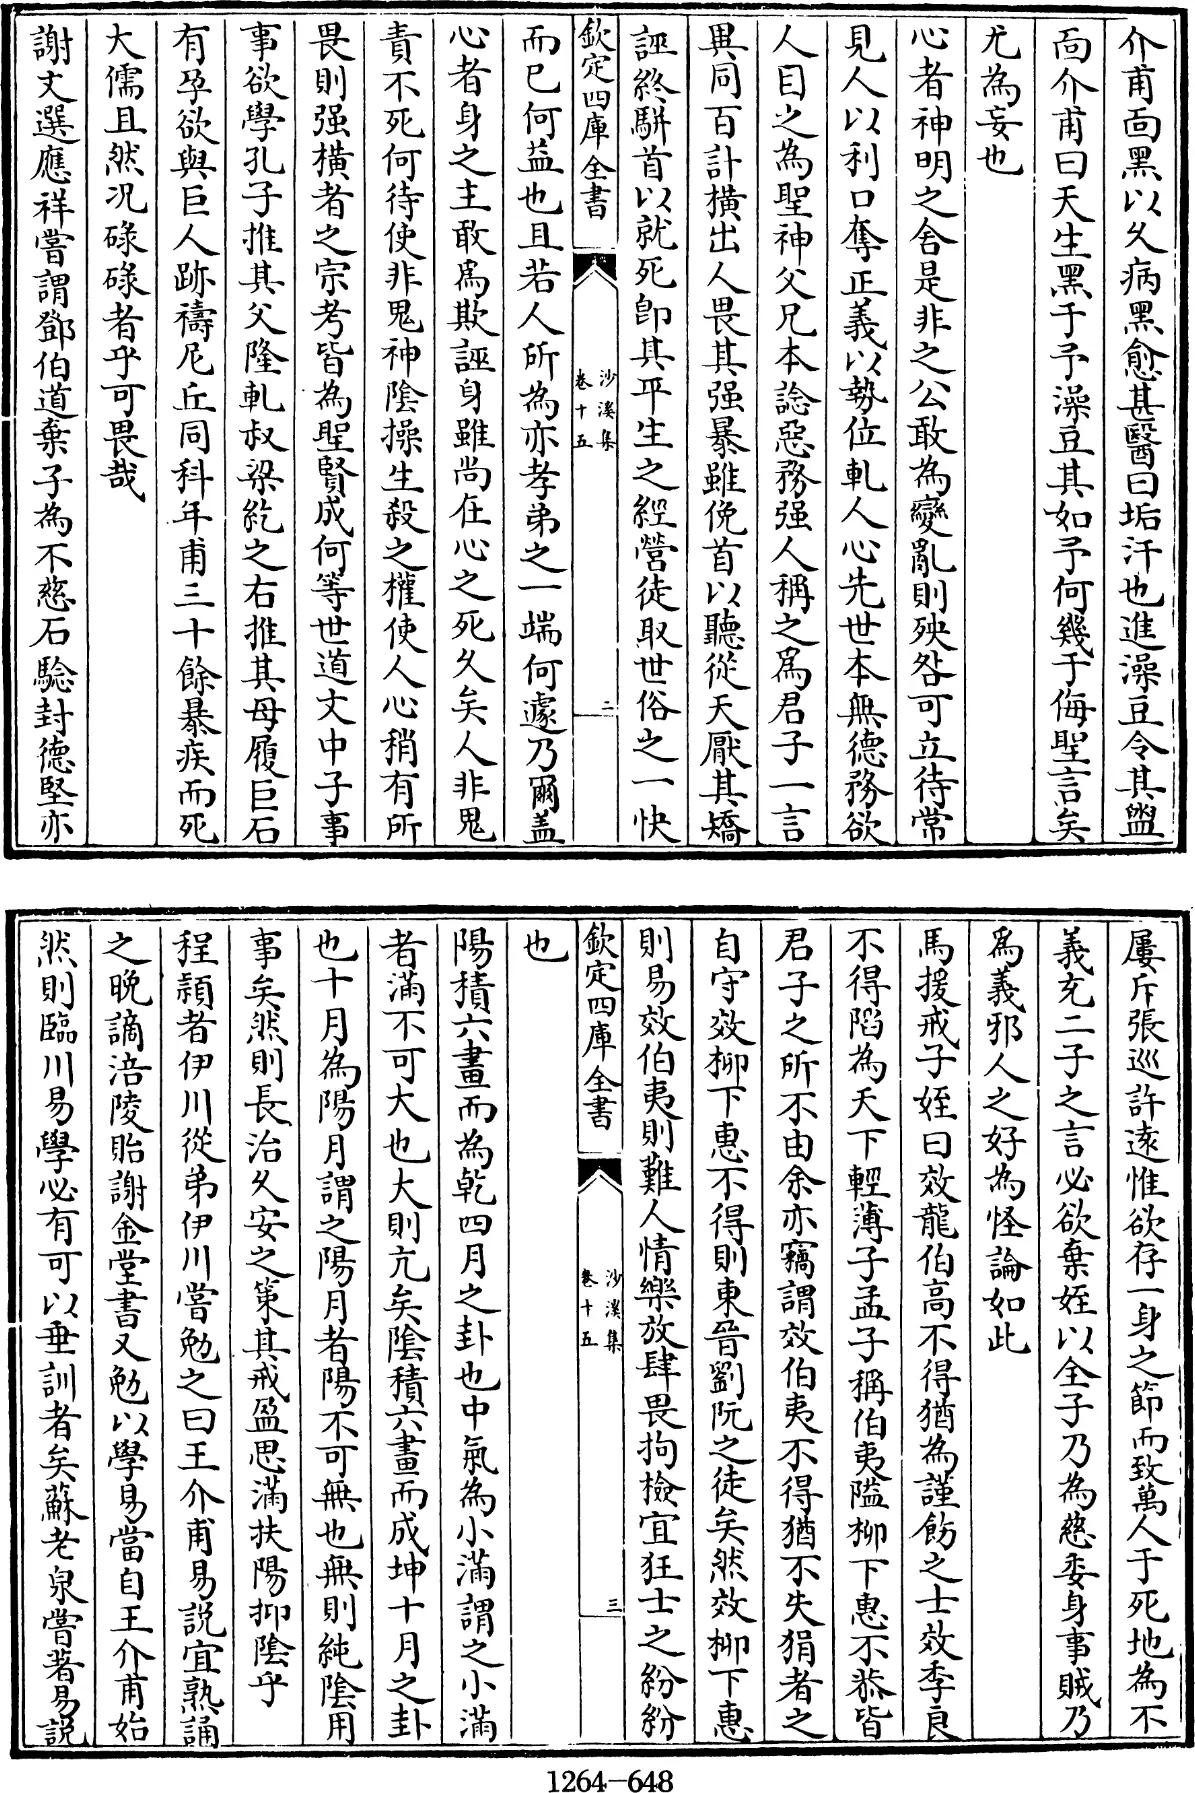 介甫面黑以久病黑愈甚醫曰垢汗也進澡豆令其盥
面介甫曰天生黑于予澡豆其如予何幾于侮聖言矣
尤為妄也
心者神明之舍是非之公敢為變亂則殃咎可立待常
見人以利口奪正義以勢位軋人心先世本無德務欲
人目之為聖神父兄本諗惡務强人稱之爲君子一言
異同百計橫出人畏其强暴雖俛首以聽從天厭其矯
誣終駢首以就死卽其平生之經營徒取世俗之一快
欽定四庫全書
沙溪集
卷十五
二
而已何益也且若人所為亦孝弟之一端何遽乃爾盖
心者身之主敢爲欺誣身雖尚在心之死久矣人非鬼
責不死何待使非鬼神陰操生殺之權使人心稍有所
畏則强橫者之宗考皆為聖賢成何等世道文中子事
事欲學孔子推其父隆軋叔梁紇之右推其母履巨石
有孕欲與巨人跡禱尼丘同科年甫三十餘暴疾而死
大儒且然况碌碌者乎可畏哉
謝文選應祥嘗謂鄧伯道棄子為不慈石駘封德堅亦
屢斥張巡許遠惟欲存一身之節而致萬人于死地為不
義充二子之言必欲棄姪以全子乃為慈委身事賊乃
爲義邪人之好為怪論如此
馬援戒子姪曰效龍伯高不得猶為謹飭之士效季良
不得陷為天下輕薄子孟子稱伯夷隘柳下惠不恭皆
君子之所不由余亦竊謂效伯夷不得猶不失狷者之
自守效柳下惠不得則東晉劉阮之徒矣然效柳下惠
則易效伯夷則難人情樂放肆畏拘檢宜狂士之紛紛
欽定四庫全書
沙溪集
卷十五
三
也
陽積六畫而為乾四月之卦也中氣為小滿謂之小滿
者滿不可大也大則亢矣陰積六畫而成坤十月之卦
也十月為陽月謂之陽月者陽不可無也無則純陰用
事矣然則長治久安之策其戒盈思滿扶陽抑陰乎
程頴者伊川從弟伊川嘗勉之曰王介甫易説宜熟誦
之晩謫涪陵貽謝金堂書又勉以學易當自王介甫始
然則臨川易學必有可以垂訓者矣蘇老泉嘗著易説
1264-648